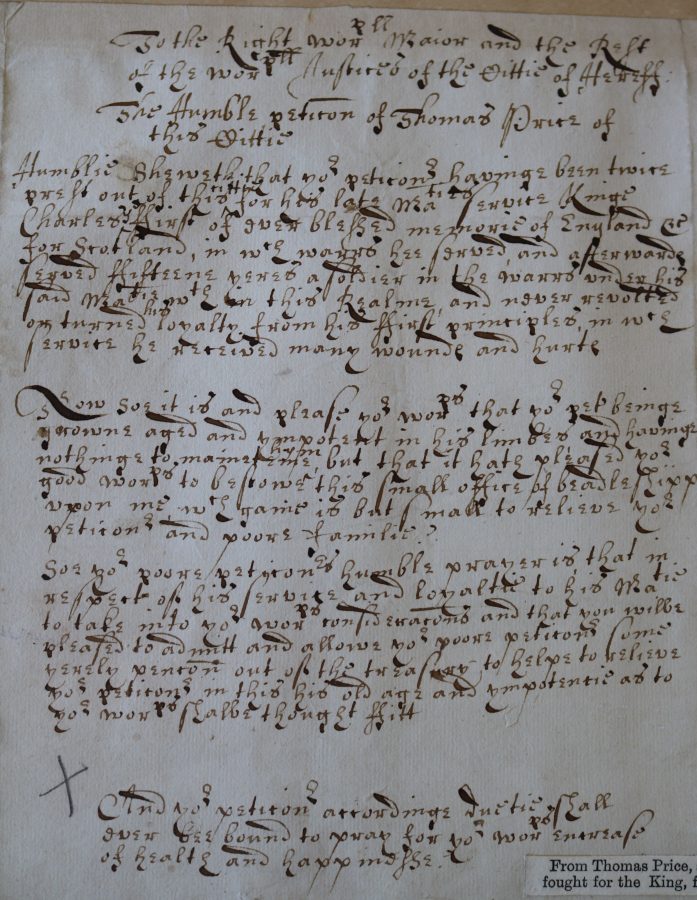 To the Right worpll Maior and the Rest
of the worpll Justices of the Cittie of Hereff:
The Humble peticon of Thomas Price of
this Cittie
Humblie Sheweth that yor peticonr havinge been twice
prest out of this cittie for his late Maties service Kinge
Charles the ffirst of ever blessed memorie of England &c
for Scotland, in wch warrs hee served, and afterwards
served ffifteene yeres a soldier in the warrs under his
said Matie wch in this Realme, and never revolted
or turned his loyalty from his ffirst principles, in wch
service he received many wounds and hurts
Now soe it is and please yor worps that yor petr beinge
growne aged and ympotent in his limbes and havinge
nothinge to mainteine him, but that it hath pleased yor
good worps to bestowe this small office of beadleshipp
upon me wch gaine is but small to relieve yor
peticonr and poore familie.
Soe yor poore petyconrs humble prayer is, that in
respect of his service and loyaltie to his Matie
to take into yor worps consideracons and that you wilbe
pleased to admitt and allowe yor poore peticonr some
yerely pencon out of the treasury to helpe to relieve
yor peticonr in this his old age and ympotencie as to
yor worps shalbe thought ffitt
And yor peticonr accordinge duetie shall
ever bee bound to pray for yor worps encrease
of health and happinesse.
From Thomas Price,
fought for the King, f